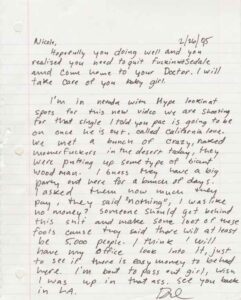 Nicole, 2/26/95
Hopefully you doing well and you
realized you need to quit fuckinwitSedale
and Come home to your Doctor. I will
take care of you baby girl.
I'm in nevada with Hype lookinat
spots for this new video we are shooting
for that single I told you pac is going to be
on once he is out, called California love.
We met a bunch of crazy, naked
mutherfuckers in the desert today, they
were putting up some type of giant
wood man. I guess they have a big
party out here for a bunch of days.
I asked them how much they
pay, they said "nothing", I was like
no money? Someone should get behind
this shit and make some loot of these
fools cause they said there will at least
be 5,000 people. I think I will
have my office look into it, just
to see if there is easy money to be had
here. I'm bout to pass out girl, wish
I was up in that ass. See you back
in LA.
Dre